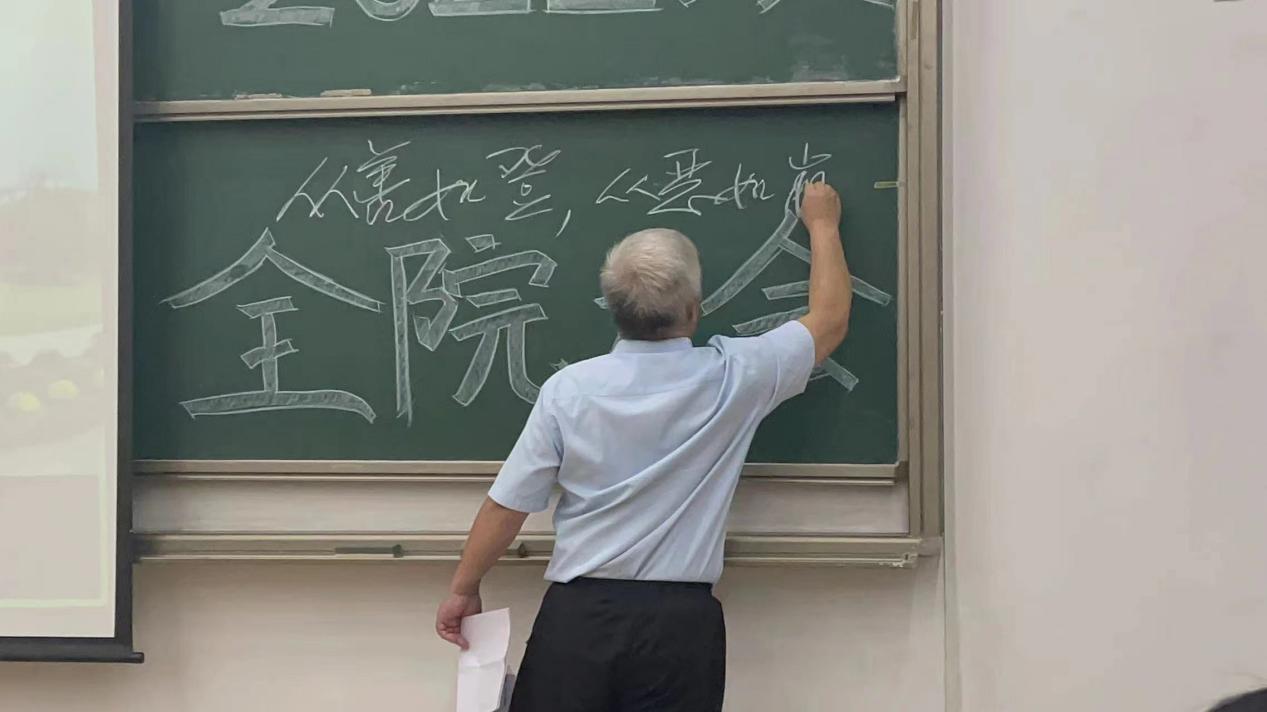 从善如登，从恶如崩
全院 会